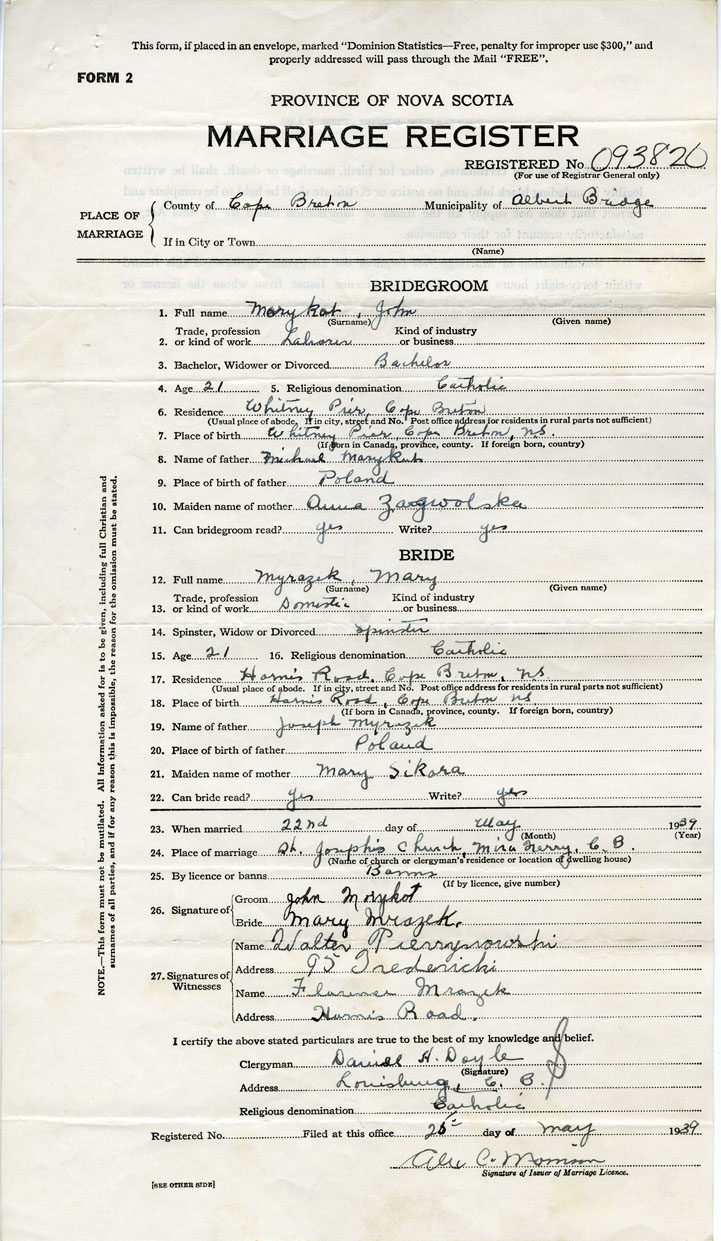 This form, if placed in an envelope, marked "Dominion Statistics—Free, penalty for improper use $300," and
properly addressed will pass through the Mail "FREE".
FORM 2
PROVINCE OF NOVA SCOTIA
MARRIAGE REGISTER
REGISTERED No 093820
(For use of Registrar General only)
PLACE OF MARRIAGE
County of Cape Breton Municipality of Albert Bridge
If in City or Town
(Name)
BRIDEGROOM
1. Full name Marykot, John
(Surname) (Given name)
2. Trade, profession or kind of work Laborer Kind of industry or business
3. Bachelor, Widower or Divorced Bachelor
4. Age 21 5. Religious denomination Catholic
6. Residence Whitney Pier, Cape Breton
(Usual place of abode. If in city, street and No. Post office address for residents in rural parts not sufficient)
7. Place of birth Whitney Pier, Cape Breton, N.S.
(If born in Canada, province, county. If foreign born, country)
8. Name of father Michael Marykut
9. Place of birth of father Poland
10. Maiden name of mother Anna Zagwolska
11. Can bridegroom read? yes Write? yes
BRIDE
12. Full name Myrazek, Mary
(Surname) (Given name)
13. Trade, profession or kind of work Domestic Kind of industry or business
14. Spinster, Widow or Divorced Spinster
15. Age 21 16. Religious denomination Catholic
17. Residence Harris Road, Cape Breton, NS
(Usual place of abode. If in city, street and No. Post office address for residents in rural parts not sufficient)
18. Place of birth Harris Road, Cape Breton NS
(If born in Canada, province, county. If foreign born, country)
19. Name of father Joseph Myrazik
20. Place of birth of father Poland
21. Maiden name of mother Mary Sikora
22. Can bride read? yes Write? yes
23. When married 22nd day of May 1939
(Month) (Year)
24. Place of marriage St. Joseph's Church, Mira Ferry, C.B.
(Name of church or clergyman's residence or location of dwelling house)
25. By licence or banns Banns
(If by licence, give number)
26. Signature of
Groom John Morykot
Bride Mary Mrazek.
27. Signatures of Witnesses
Name Walter
Address 95
Name Florence Mrazek
Address Harris Road.
I certify the above stated particulars are true to the best of my knowledge and belief.
Clergyman Daniel A. Doyle
(Signature)
Address Louisburg, C. B.
Religious denomination Catholic
Registered No. Filed at this office 26 day of may 1939
Alex C. Morrison
Signature of Issuer of Marriage Licence.
[SEE OTHER SIDE]
NOTE.—This form must not be mutilated. All Information asked for is to be given, including full Christian and
surnames of all parties, and if for any reason this is impossible, the reason for the omission must be stated.